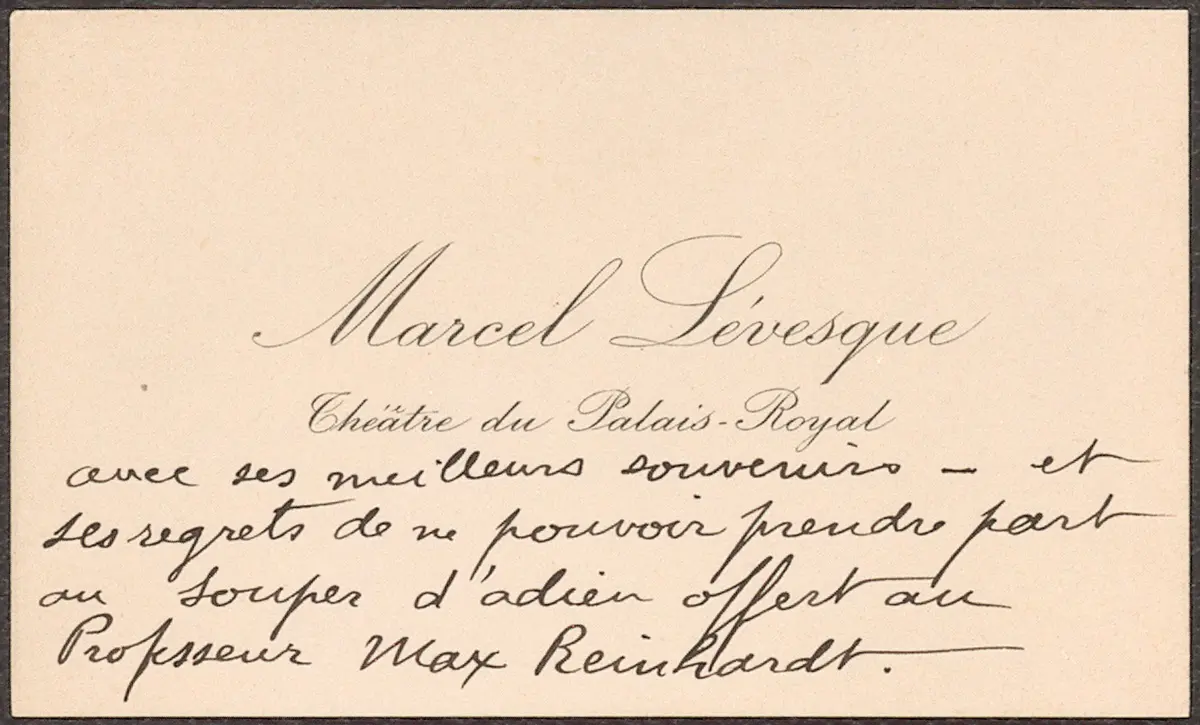 Marcel Lévesque
Théâtre du Palais-Royal
avec ses meilleurs souvenirs – et
ses regrets de ne pouvoir prendre part
au souper d'adieu offert au
Professeur Max Reinhardt.